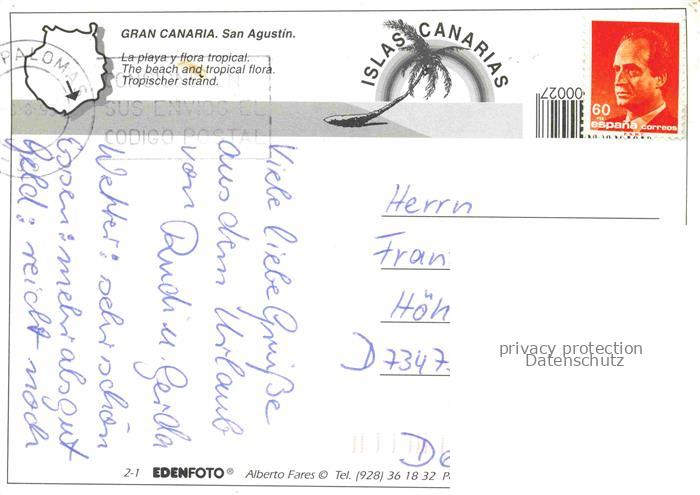 GRAN CANARIA. San Agustín.
La playa y flora tropical.
The beach and tropical flora.
Tropischer strand.
PALOMAS
SUS ENVIOS EL
CODIGO POSTAL
ISLAS CANARIAS
00027
60
españa correos
Viele liebe Grüße
aus dem Urlaub
von Rudi u. Gerda
Wetter: sehr schön
Essen: mehr als gut
Geld: reicht noch
Herrn
Fran
Höh
D 7347
De
privacy protection
Datenschutz
2-1 EDENFOTO® Alberto Fares © Tel. (928) 36 18 32 P